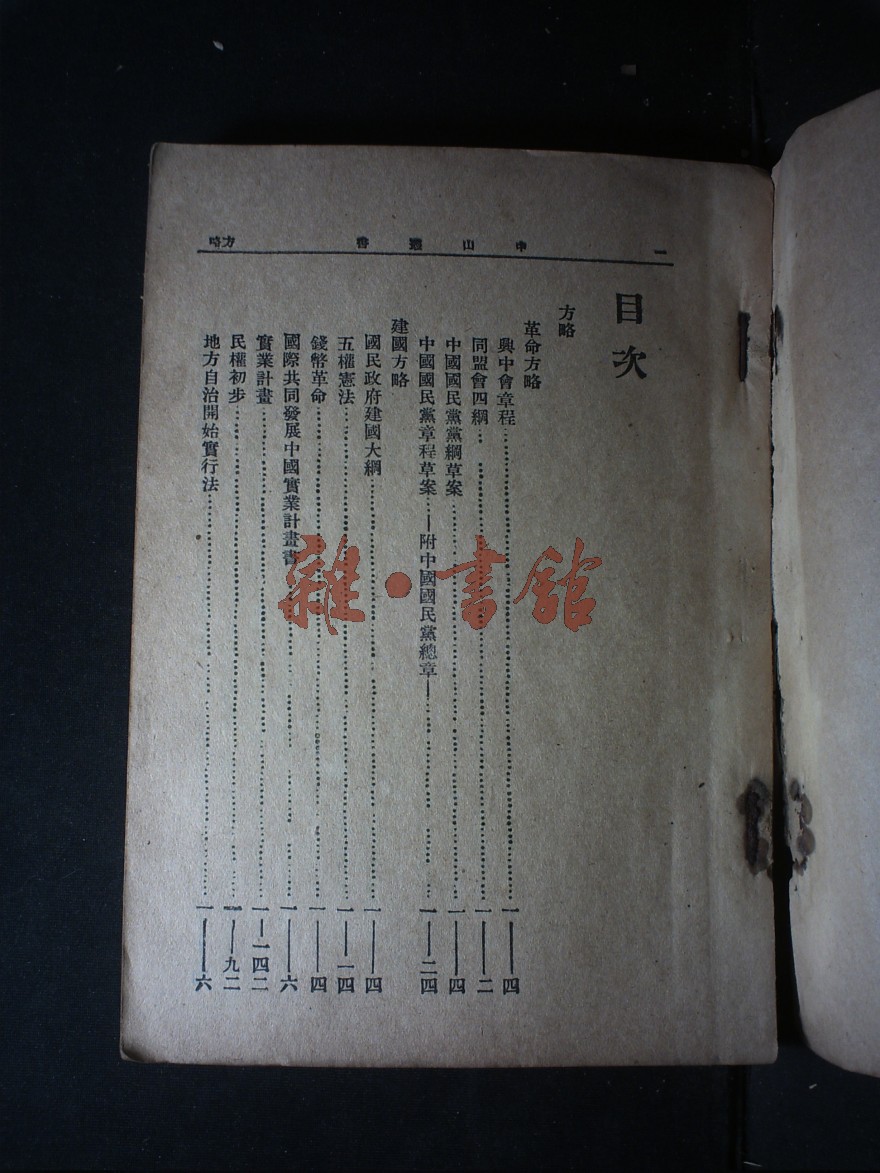 一　中山遺書　方略
目次
方略
革命方略
興中會章程……一——四
同盟會四綱……一——二
中國國民黨黨綱草案……一——四
中國國民黨章程草案……—附中國國民黨總章—……一——二四
建國方略
國民政府建國大綱……一——四
五權憲法……一——一四
錢幣革命……一——四
國際共同發展中國實業計畫書……一——六
實業計畫……一——一四二
民權初步……一——九二
地方自治開始實行法……一——六
雜·書館